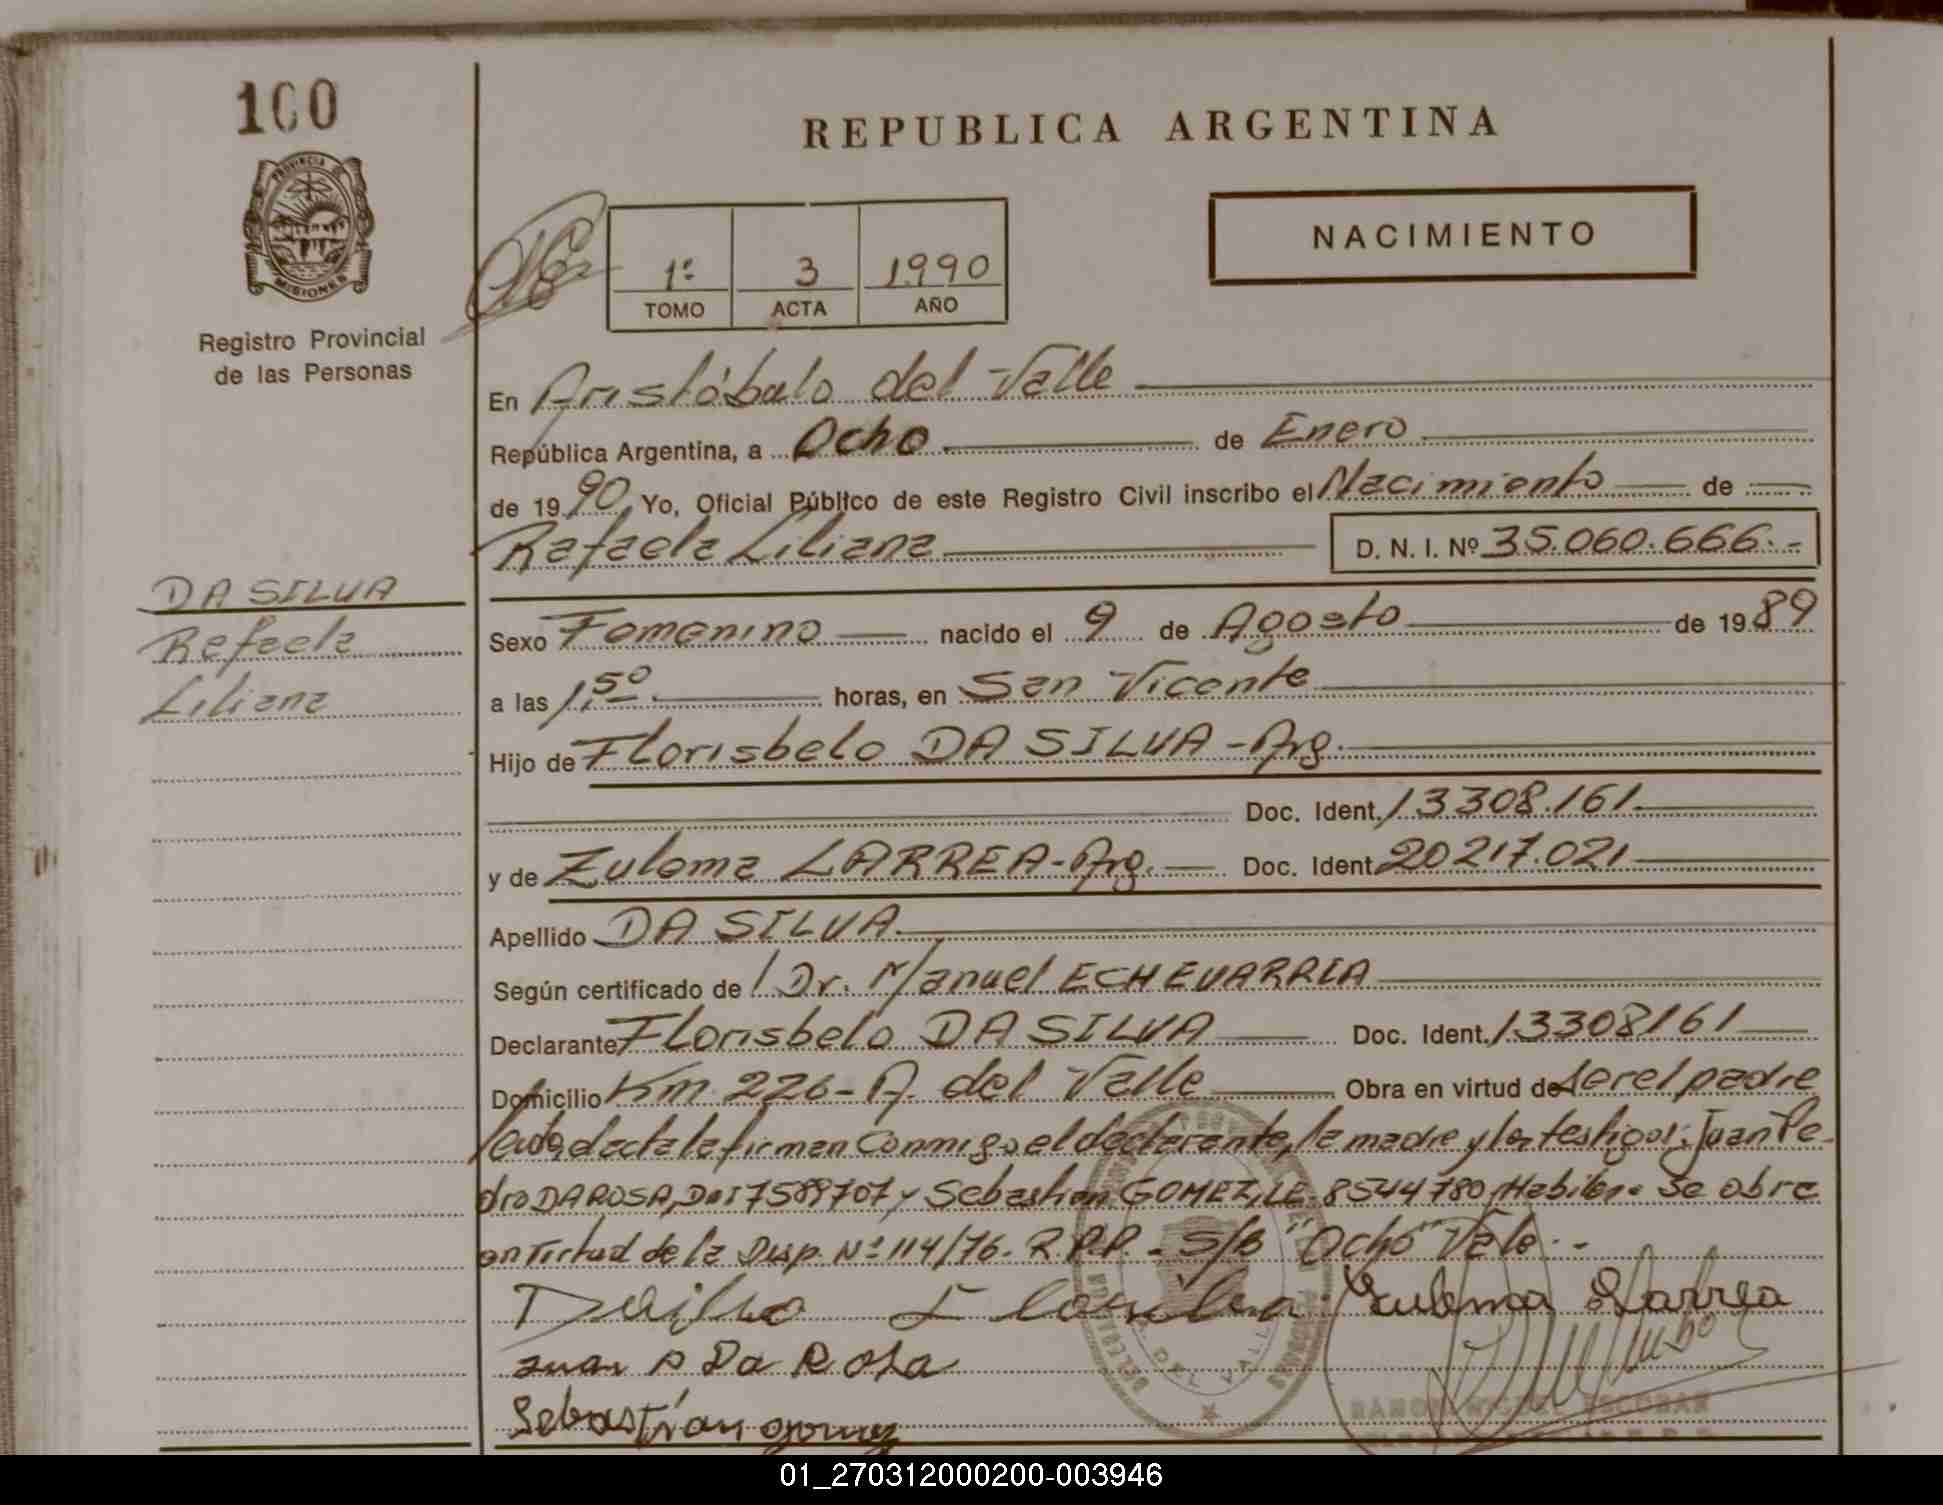 100
REPUBLICA ARGENTINA
PROVINCIA
MISIONES
Registro Provincial
de las Personas
1º 3 1990
TOMO ACTA AÑO
NACIMIENTO
En Aristóbulo del Valle
República Argentina, a Ocho de Enero
de 1990 Yo, Oficial Público de este Registro Civil inscribo el Nacimiento de
Rafaela Liliana D. N. I. Nº 35.060.666.-
DA SILVA
Rafaela
Liliana
Sexo Femenino nacido el 9 de Agosto de 1989
a las 1,50 horas, en San Vicente
Hijo de Florisbelo DA SILVA - Arg.
Doc. Ident. 13308.161
y de Zulema LARREA - Arg. Doc. Ident. 20217.021
Apellido DA SILVA.
Según certificado de Dr. Manuel ECHEVARRIA
Declarante Florisbelo DA SILVA Doc. Ident. 13308161
Domicilio Km 226 - A. del Valle Obra en virtud de ser el padre
Leída el acta la firman conmigo el declarante, la madre y los testigos: Juan Pe-
dro DA ROSA, DNI 7589707 y Sebastian GOMEZ, LE. 8544780 Habiles. Se obra
en virtud de la Disp. Nº 114/76. R.P.P. - S/B "Ocho" Vale. -
Zulema Larrea
Juan P Da Rosa
Sebastián gomez
DEL VALLE
RAMON ESCOBAR
01_270312000200-003946